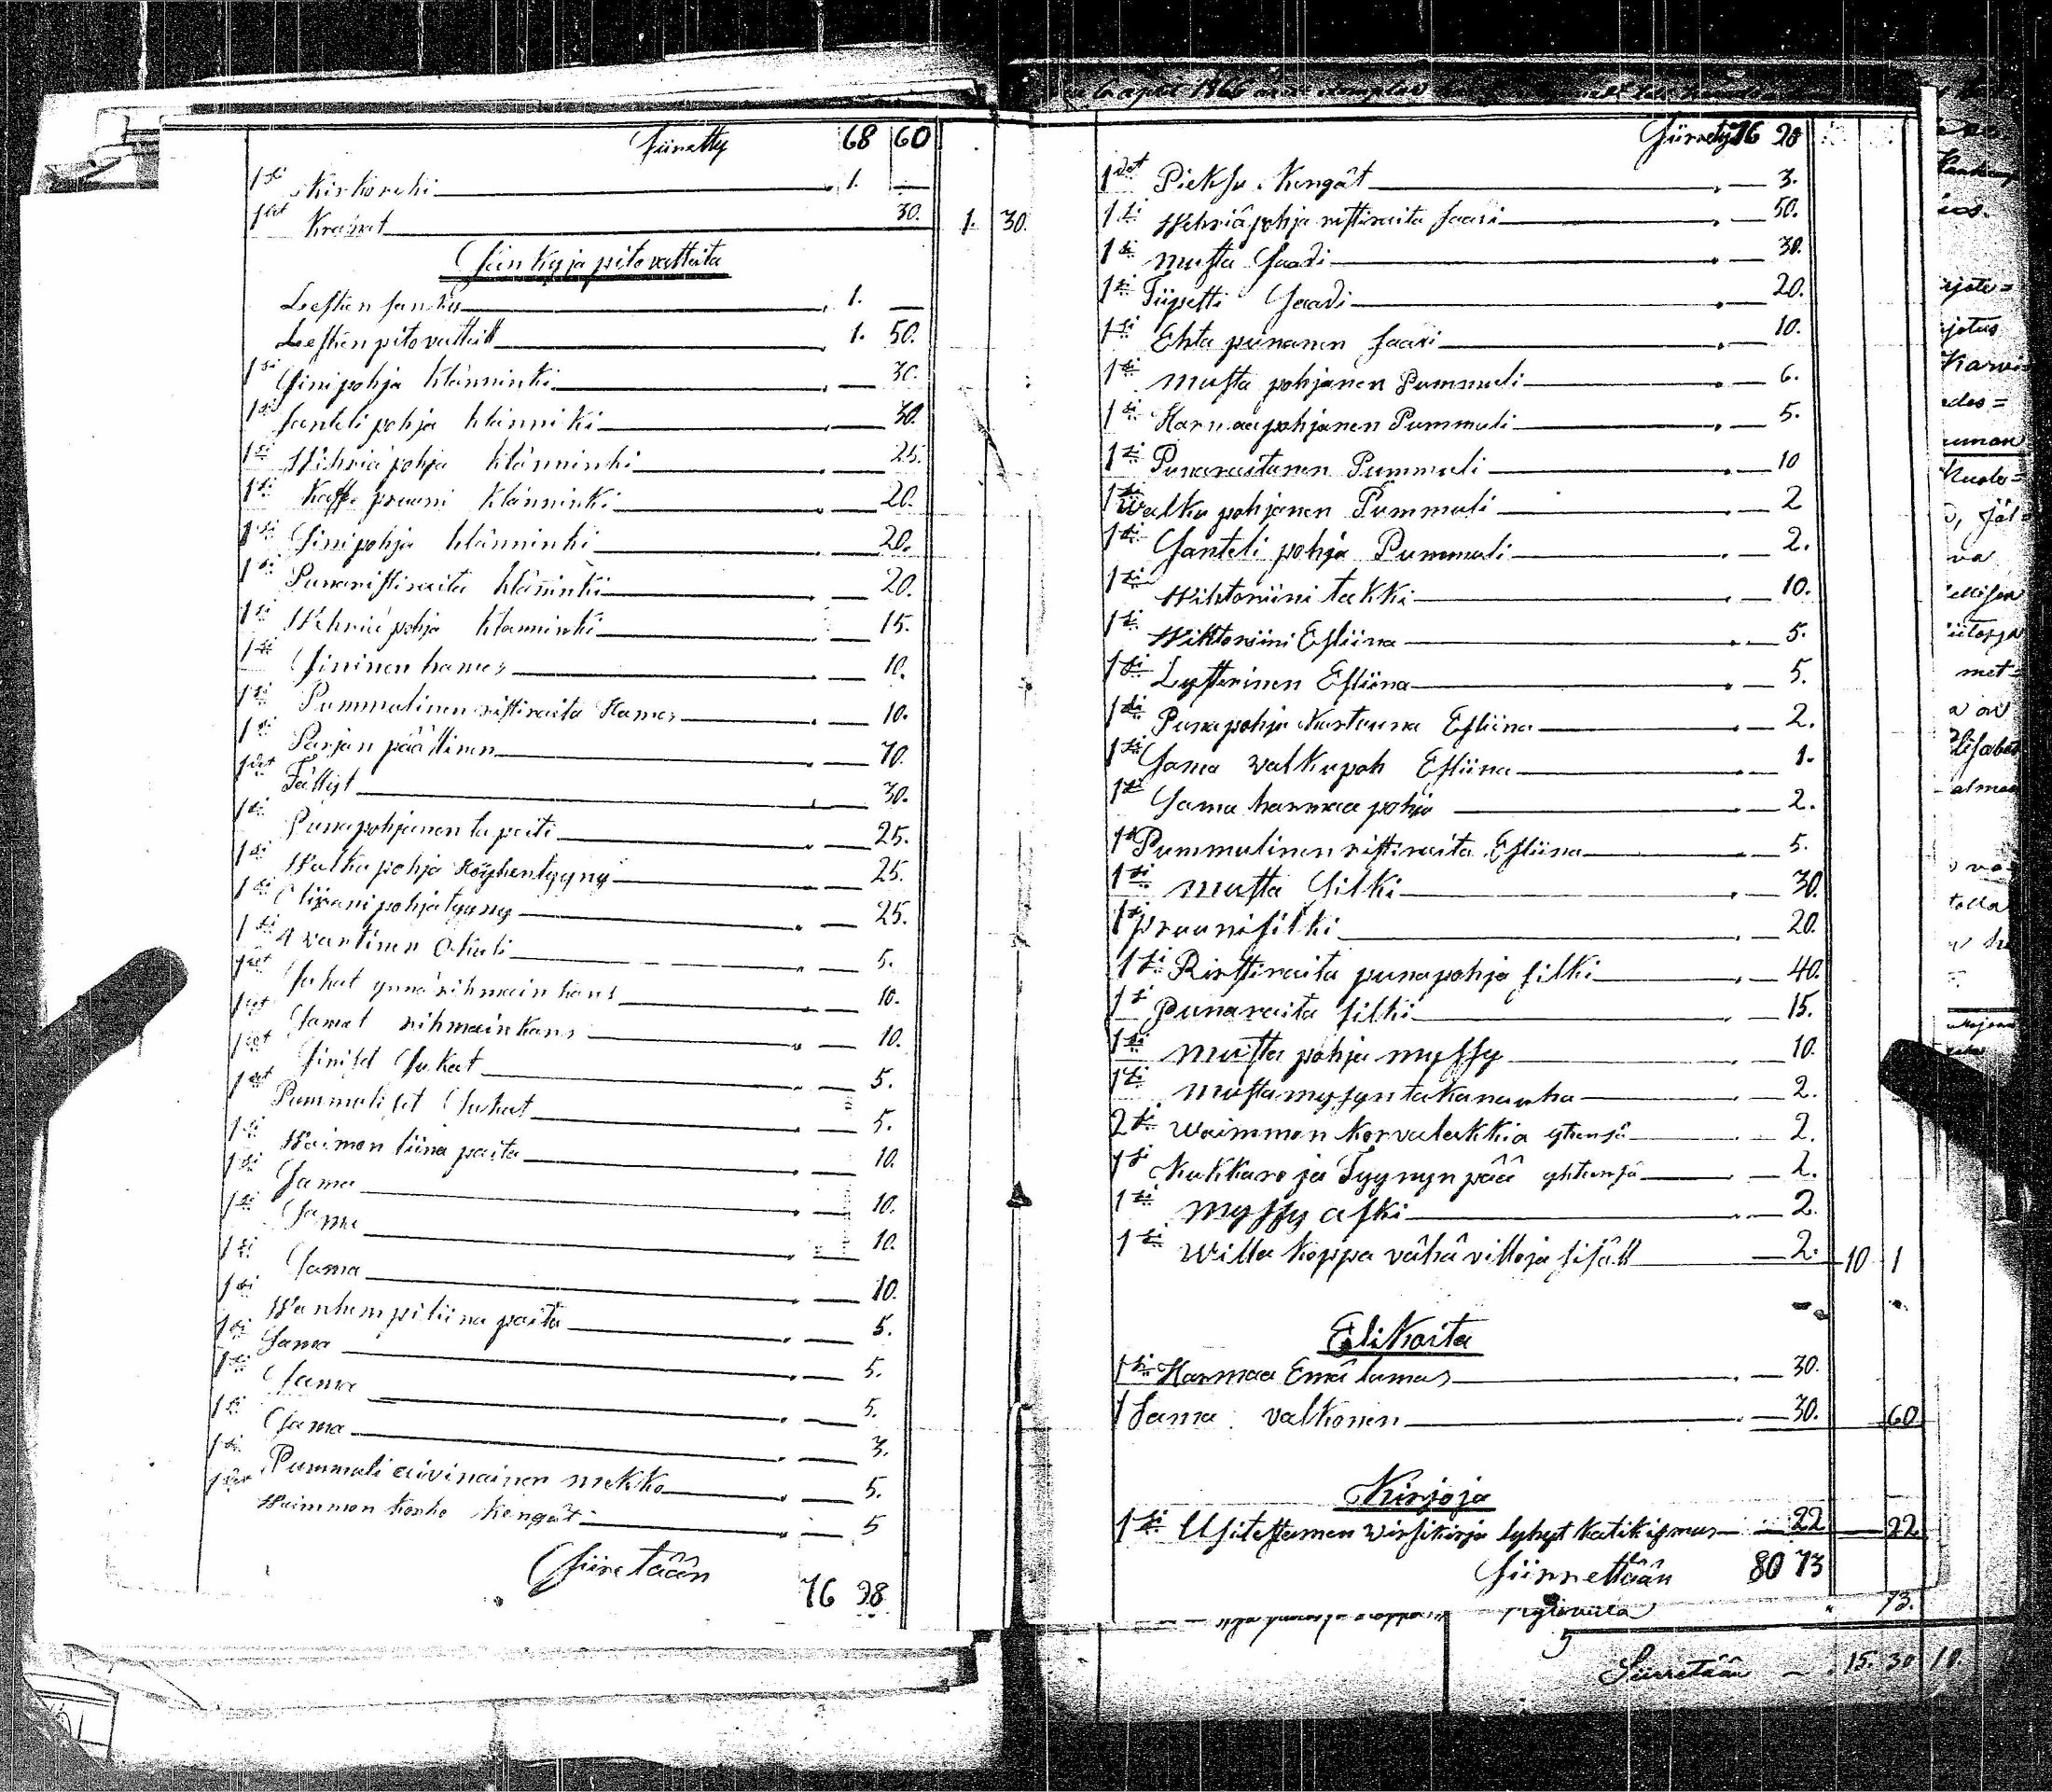 Siiretty 68 60
1 si Kirkoreki 1. —
1 set Krainat 30. 1. 30.
Sänky ja pitovatteita
Lesken sänky 1. —
Lesken pitovatteet 1. 50.
1 si Sinipohja klänninki — 30.
1 si Santeli pohja klänninki — 30.
1 si Wihriä pohja klänninki — 25.
1 si Kaffe praani klänninki — 20.
1 si Sinipohja klänninki — 20.
1 si Punaristiraita kläninki — 20.
1 si Wehriä pohja klänninki — 15.
1 si Sininen hames — 10.
1 si Pummulinen ristiraita Hames — 10.
1 si Sarjan päällinen — 70.
1 set Fällyt — 30.
1 si Punapohjanen tapeiti — 25.
1 si Walkapohja Höyhentyyny — 25.
1 si pohja tyyny — 25.
1 si — 5.
1 set Sukat ynnä rihmain kans — 10.
1 set Samat rihmain kans — 10.
1 set Siniset Sukat — 5.
1 set Pummuliset Sukat — 5.
1 si Waimon liina paita — 10.
1 si Sama — 10.
1 si Sama — 10.
1 si Sama — 10.
1 si Wanhempi liina paita — 5.
1 si Sama — 5.
1 si Sama — 5.
1 si Sama — 3.
1 si Pummuli aivinainen mekko — 5.
Waimmon konho kengät — 5
Siiretään
76 28
Siiretty 76 28
1 set Pieksu Kengät — 3.
1 si Wehriäpohja ristiraita saari — 50.
1 si musta Saadi — 30.
1 si Tiipetti Saadi — 20.
1 si Ehta punanen saari — 10.
1 si musta pohjanen Pummuli — 6.
1 si Harmaapohjanen Pummuli — 5.
1 si Punaraitanen Pummuli — 10
1 si Walka pohjanen Pummuli — 2
1 si Santeli pohja Pummuli — 2.
1 si Wihtoriini takki — 10.
1 si Wiktoriini Esliina — 5.
1 si Lysterinen Esliina — 5.
1 si Punapohja Kartuuna Esliina — 2.
1 si Sama walkapoh Esliina — 1.
1 si Sama harmaa pohja — 2.
1 si Pummulinen ristiraita Esliina — 5.
1 si musta Silki — 30.
1 si pruuni silki — 20.
1 si Ristiraita punapohja silki — 40.
1 si punaraita silki — 15.
1 si musta pohja myssy — 10.
1 si musta myssyn takanauha — 2.
2 si waimmon korvalakkia yhensä — 2.
1 si Kukkaro ja Tyynyn pää yhtensä — 2.
1 si myssy aski — 2.
1 si willa koppa vähä villoja sisäll — 2. 10 1
Elikoita
1 si Harmaa Emä lamas — 30.
1 Sama valkonen — 30. 60
Kirjoja
1 si Usitestamen wirsikirja lyhyt katikismus — 22 — 22
Siirrettään 80 73
73.
Siirretään — 15. 30 10.